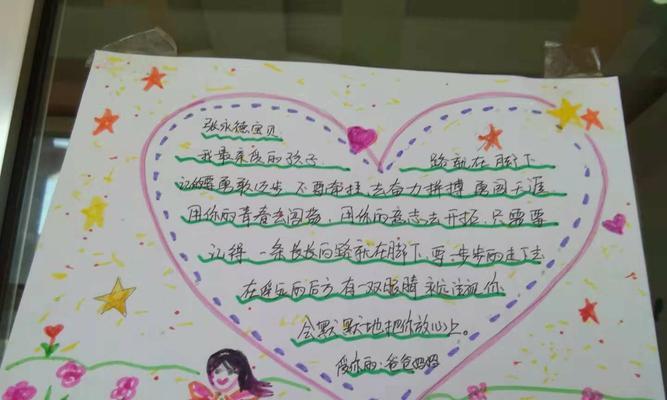 张永德宝贝
我最亲爱的孩子 路就在脚下
让你要勇敢迈步 不要牵挂 去奋力拼搏 勇闯天涯
用你的青春去闯荡,用你的意志去开拓,只需要
记得 一条长长的路就在脚下,要一步步的走下去
在遥远的后方 有一双眼睛 永远注视你
会默默地把你放心上。
爱你的:爸爸妈妈